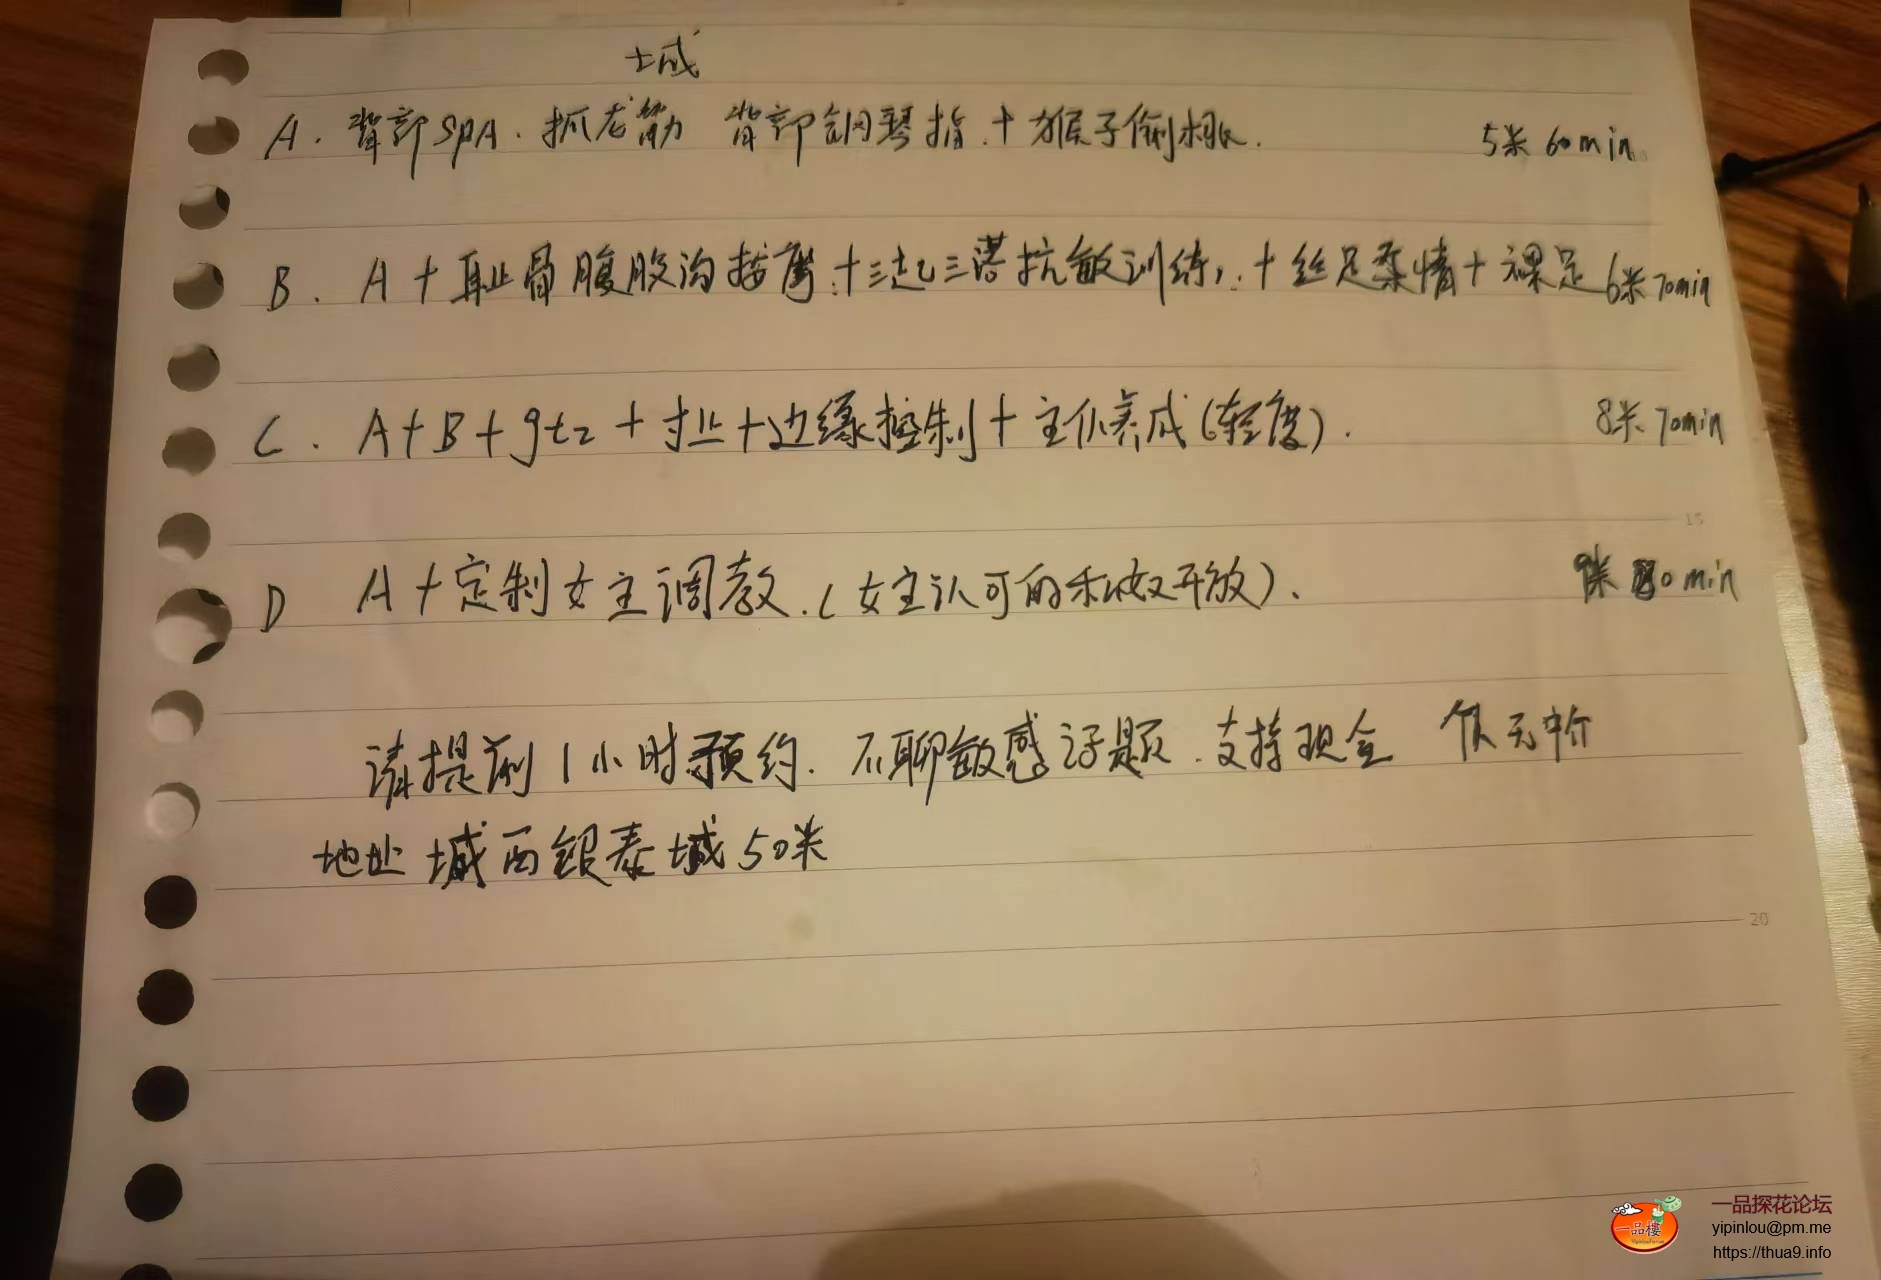 城
A. 背部SPA. 抓龙筋 背部钢琴指.+猴子偷桃. 5米 60min
B. A+耻骨腹股沟按摩.+三起三落抗敏训练,.+丝足柔情+裸足 6米 70min
C. A+B+gtz+寸止+边缘控制+主仆养成(轻度). 8米 70min
D A+定制女主调教.(女主认可的私奴开放). 米 0min
请提前1小时预约. 不聊敏感话题.支持现金 无中介
地址 城西银泰城50米
15
20
一品楼
一品探花论坛
yipinlou@pm.me
https://thua9.info